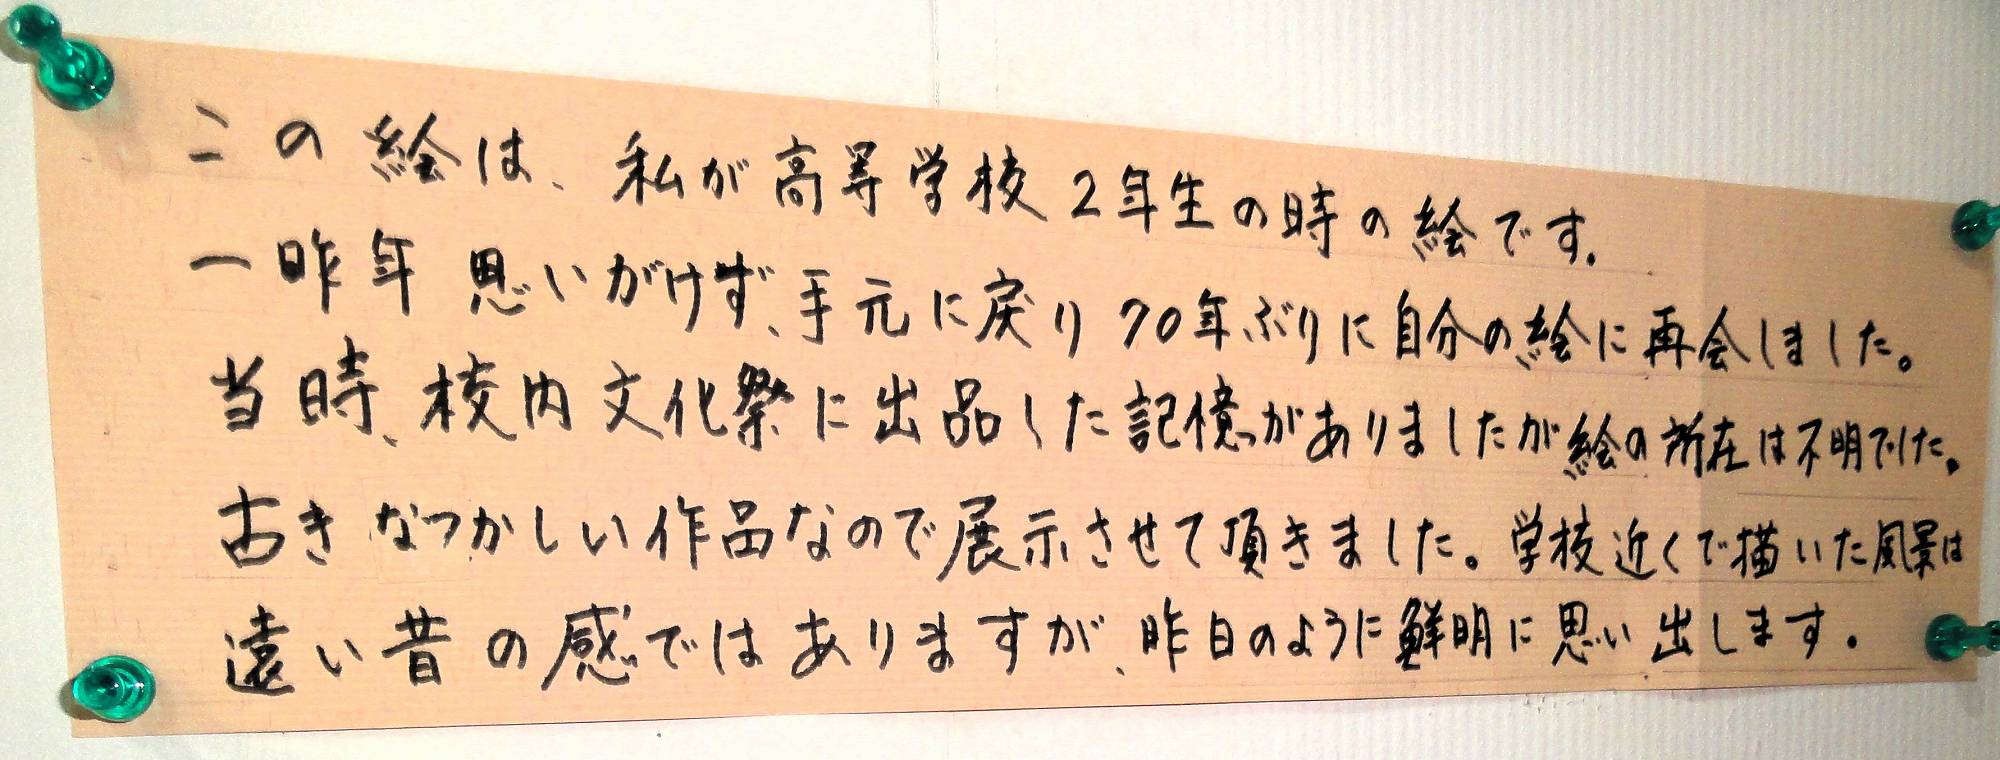 この絵は、私が高等学校2年生の時の絵です。
一昨年思いがけず、手元に戻り70年ぶりに自分の絵に再会しました。
当時、校内文化祭に出品した記憶がありましたが絵の所在は不明でした。
古きなつかしい作品なので展示させて頂きました。学校近くで描いた風景は
遠い昔の感ではありますが、昨日のように鮮明に思い出します。